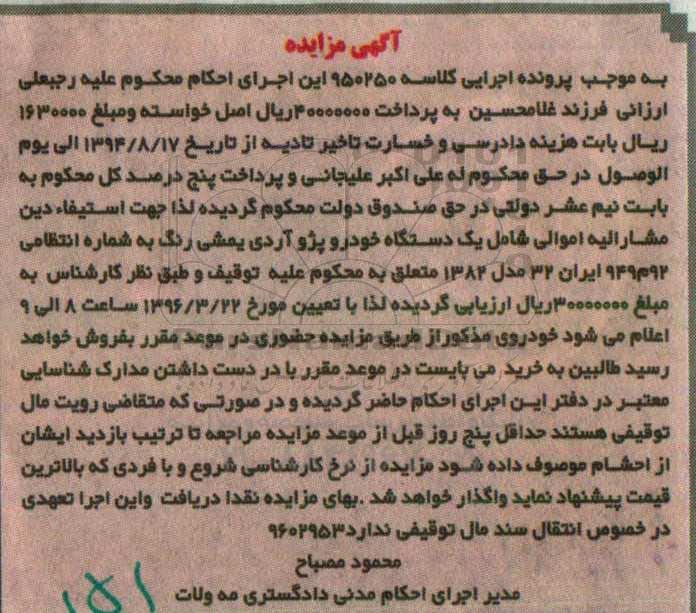 آگهی مزایده
به موجب پرونده اجرایی کلاسه ۹۵۰۲۵۰ این اجرای احکام محکوم علیه رجبعلی
ارزانی فرزند غلامحسین به پرداخت ۴۰۰۰۰۰۰۰ریال اصل خواسته ومبلغ ۱۶۳۰۰۰۰
ریال بابت هزینه دادرسی و خسارت تاخیر تادیه از تاریخ ۱۳۹۴/۸/۱۷ الی یوم
الوصول در حق محکوم له علی اکبر علیجانی و پرداخت پنج درصد کل محکوم به
بابت نیم عشر دولتی در حق صندوق دولت محکوم گردیده لذا جهت استیفاء دین
مشارالیه اموالی شامل یک دستگاه خودرو پژو آردی یمشی رنگ به شماره انتظامی
۹۲م۹۴۹ ایران ۳۲ مدل ۱۳۸۲ متعلق به محکوم علیه توقیف و طبق نظر کارشناس به
مبلغ ۳۰۰۰۰۰۰۰ریال ارزیابی گردیده لذا با تعیین مورخ ۱۳۹۶/۳/۲۲ ساعت ۸ الی ۹
اعلام می شود خودروی مذکوراز طریق مزایده حضوری در موعد مقرر بفروش خواهد
رسید طالبین به خرید می بایست در موعد مقرر با در دست داشتن مدارک شناسایی
معتبر در دفتر این اجرای احکام حاضر گردیده و در صورتی که متقاضی رویت مال
توقیفی هستند حداقل پنج روز قبل از موعد مزایده مراجعه تا ترتیب بازدید ایشان
از احشام موصوف داده شود مزایده از نرخ کارشناسی شروع و با فردی که بالاترین
قیمت پیشنهاد نماید واگذار خواهد شد .بهای مزایده نقدا دریافت واین اجرا تعهدی
در خصوص انتقال سند مال توقیفی ندارد۹۶۰۲۹۵۳
محمود مصباح
مدیر اجرای احکام مدنی دادگستری مه ولات
۱۵۱